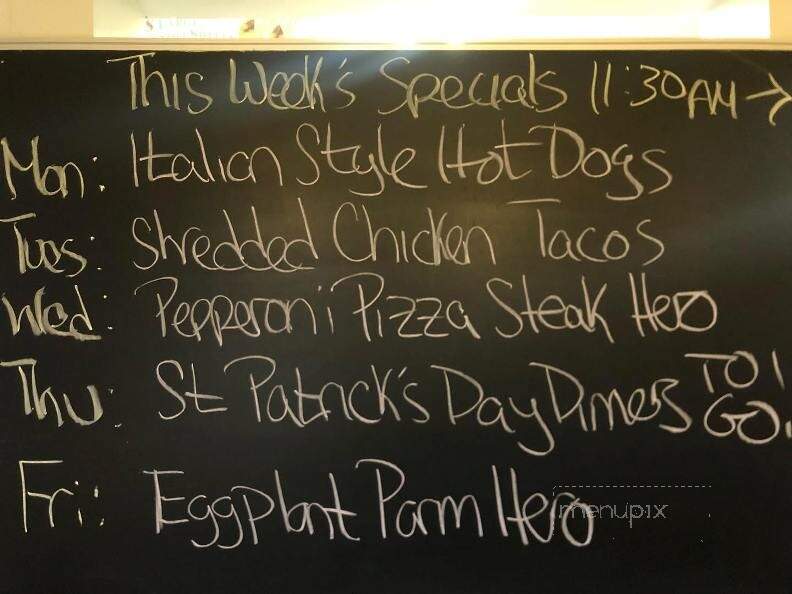 This Week's Specials 11:30AM →
Mon: Italian Style Hot Dogs
Tues: Shredded Chicken Tacos
Wed: Pepperoni Pizza Steak Hero
Thu: St Patrick's Day Dinners TO GO!
Fri: Eggplant Parm Hero
menupix